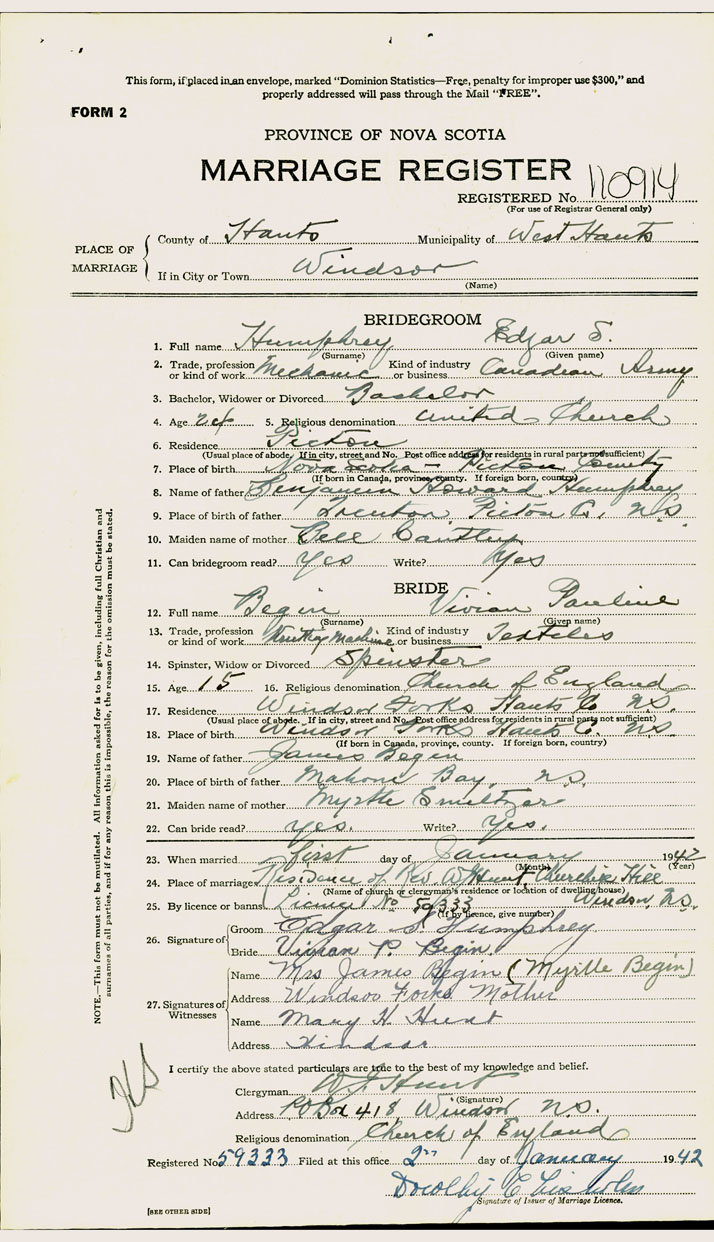 This form, if placed in an envelope, marked “Dominion Statistics—Free, penalty for improper use $300,” and
properly addressed will pass through the Mail “FREE”.
FORM 2
PROVINCE OF NOVA SCOTIA
MARRIAGE REGISTER
REGISTERED No. 110914
(For use of Registrar General only)
PLACE OF MARRIAGE
County of Hants Municipality of West Hants
If in City or Town Windsor
(Name)
BRIDEGROOM
1. Full name Humphrey Edgar S.
(Surname) (Given name)
2. Trade, profession or kind of work Mechanic Kind of industry or business Canadian Army
3. Bachelor, Widower or Divorced Bachelor
4. Age 24 5. Religious denomination United Church
6. Residence Pictou
(Usual place of abode. If in city, street and No. Post office address for residents in rural parts not sufficient)
7. Place of birth Nova Scotia - Pictou County
(If born in Canada, province, county. If foreign born, country)
8. Name of father Benjamin Howard Humphrey
9. Place of birth of father Trenton, Pictou Co. N.S.
10. Maiden name of mother Bell
11. Can bridegroom read? Yes Write? Yes
BRIDE
12. Full name Begin Vivian Pauline
(Surname) (Given name)
13. Trade, profession or kind of work Knitting Machine Kind of industry or business Textiles
14. Spinster, Widow or Divorced Spinster
15. Age 15 16. Religious denomination Church of England
17. Residence Windsor Forks Hants Co N.S.
(Usual place of abode. If in city, street and No. Post office address for residents in rural parts not sufficient)
18. Place of birth Windsor Forks Hants Co. N.S.
(If born in Canada, province, county. If foreign born, country)
19. Name of father James Begin
20. Place of birth of father Mahone Bay, N.S.
21. Maiden name of mother Myrtle Smeltzer
22. Can bride read? yes. Write? Yes.
23. When married first day of January 1942
(Month) (Year)
24. Place of marriage Residence of Rev. W F Hunt, Hill
(Name of church or clergyman's residence or location of dwelling house)
25. By licence or banns License No 59333 Windsor, N.S.
(If by licence, give number)
26. Signature of
Groom Edgar S. Humphrey
Bride Vivian P. Begin.
27. Signatures of Witnesses
Name Mrs James Begin (Myrtle Begin)
Address Windsor Forks Mother
Name Mary H. Hunt
Address Windsor
I certify the above stated particulars are true to the best of my knowledge and belief.
Clergyman W F Hunt
(Signature)
Address P.O Box 418, Windsor, N.S.
Religious denomination Church of England
Registered No. 59333 Filed at this office 2nd day of January 1942
Dorothy E Chisholm
Signature of Issuer of Marriage Licence.
[SEE OTHER SIDE]
NOTE.—This form must not be mutilated. All information asked for is to be given, including full Christian and
surnames of all parties, and if for any reason this is impossible, the reason for the omission must be stated.